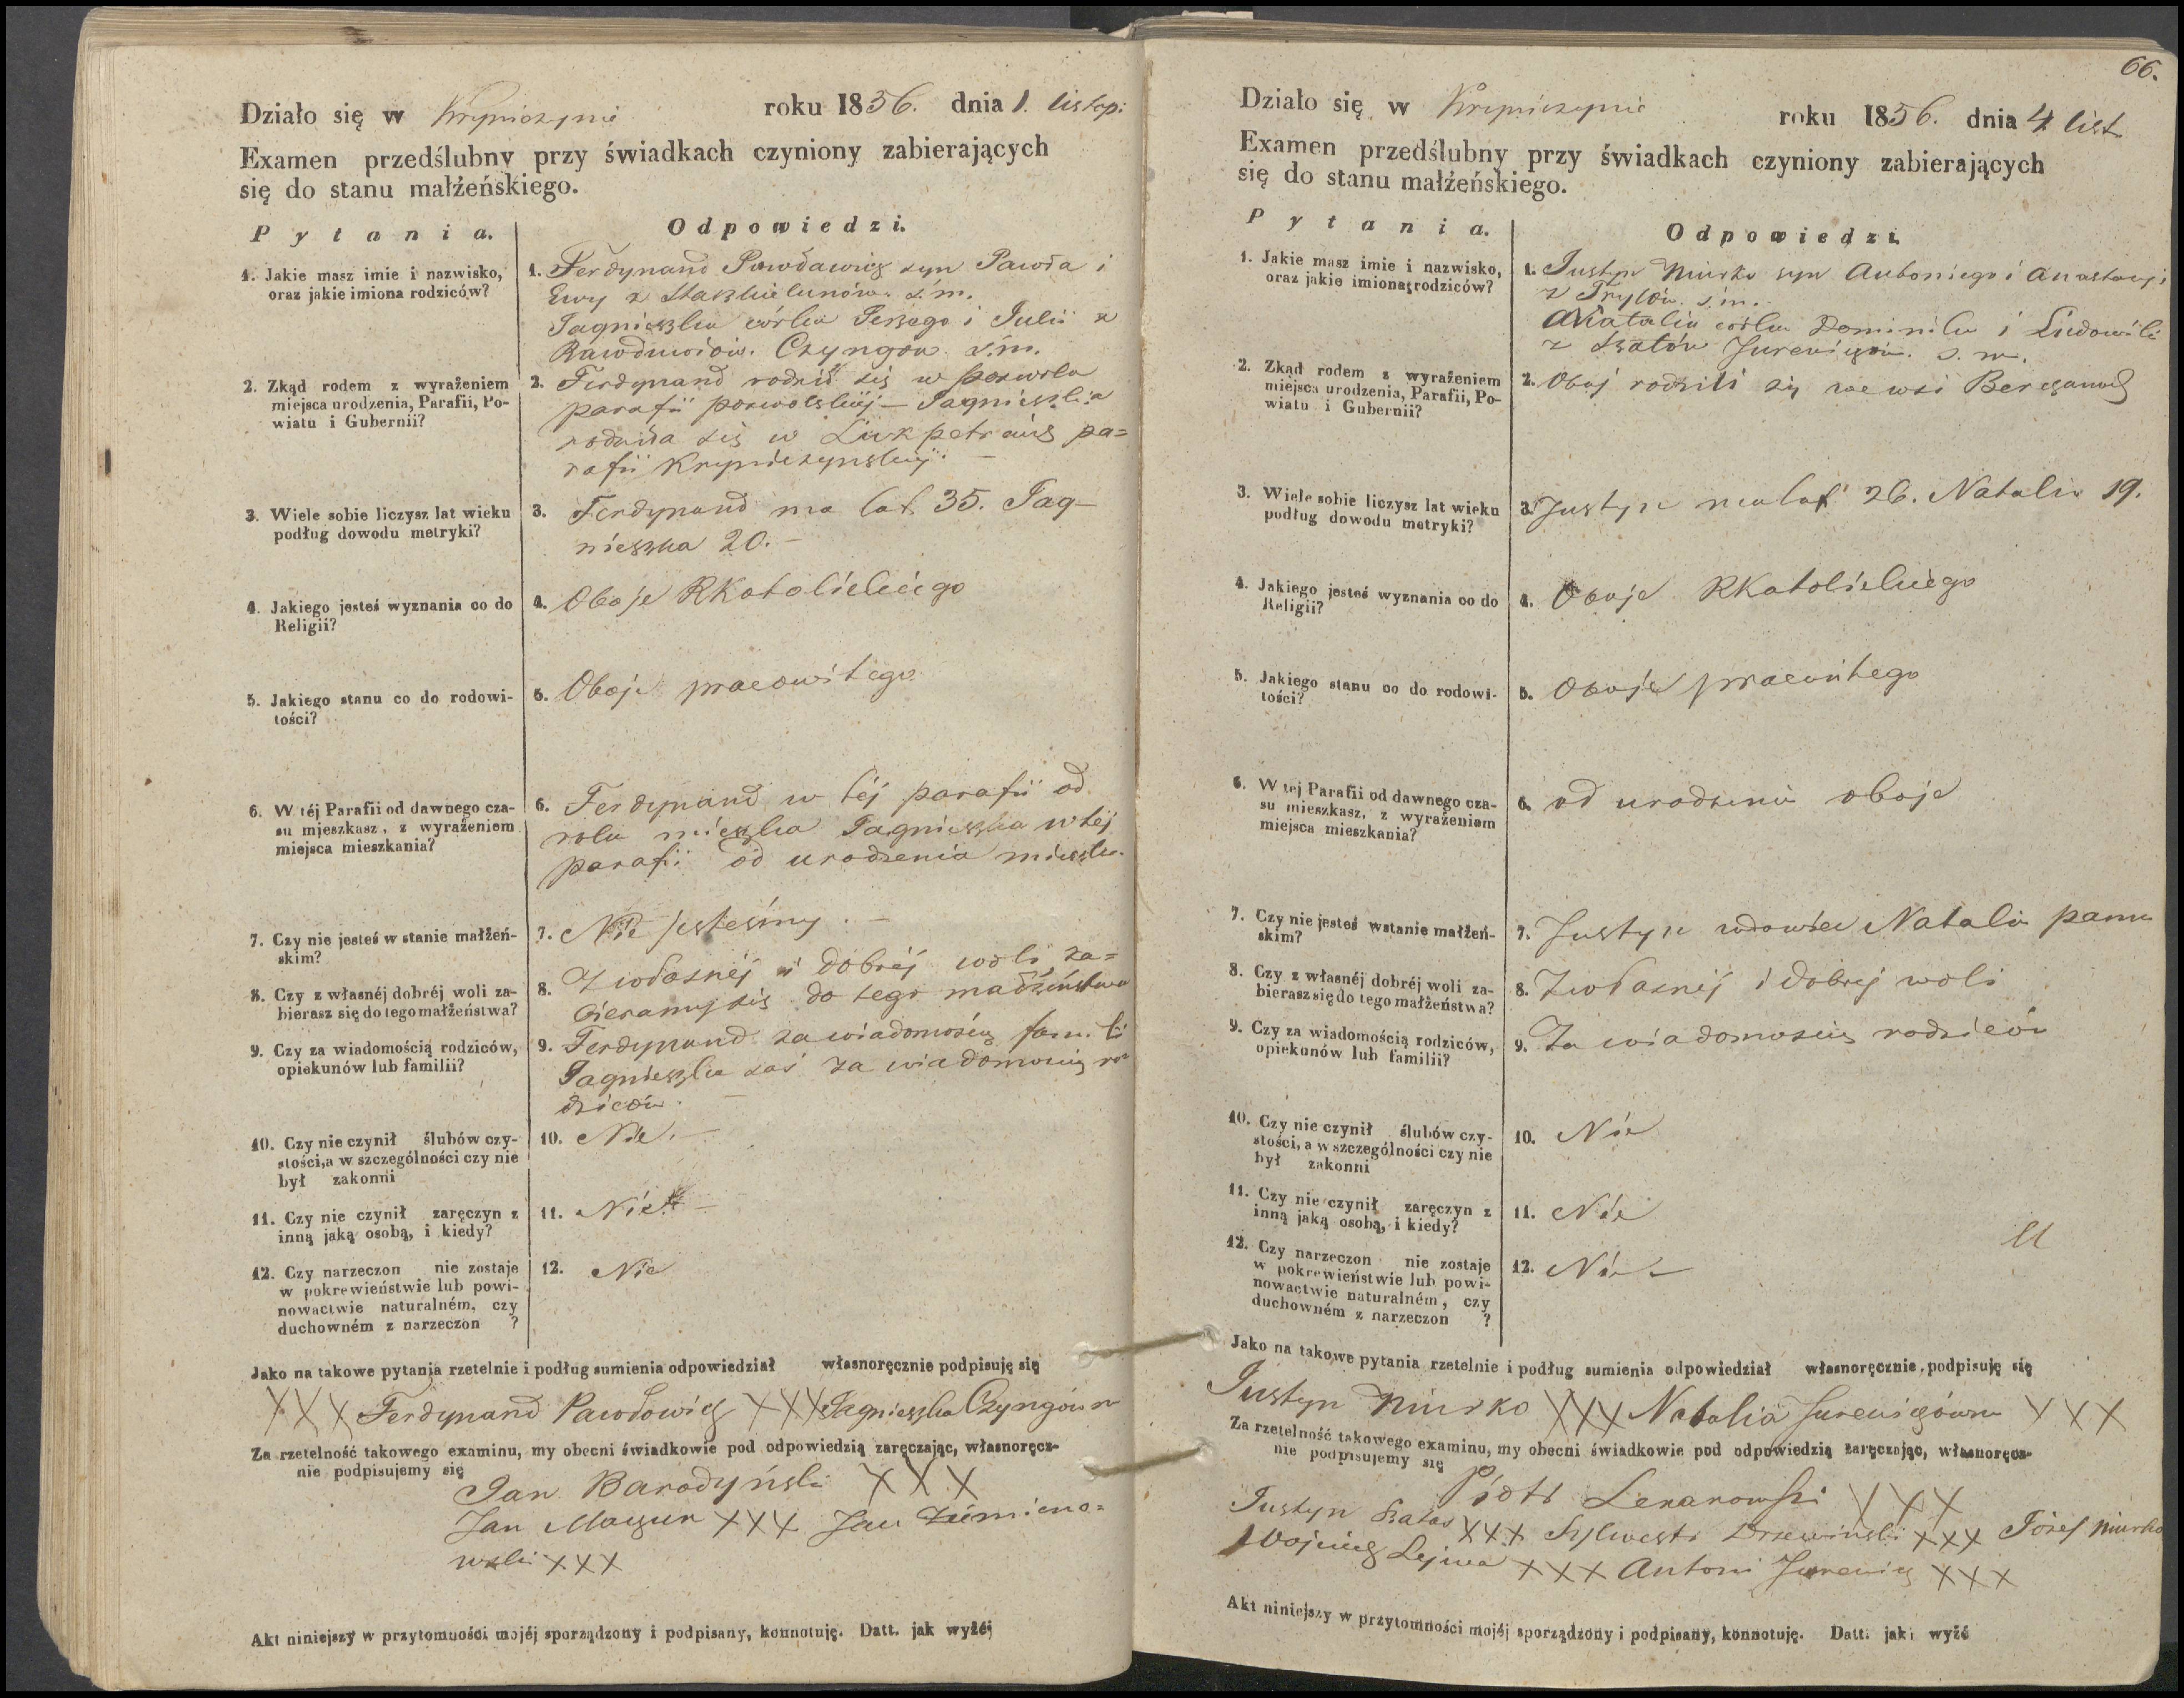 Działo się w Krypniszynie roku 1856. dnia 1. listop:
Examen przedślubny przy świadkach czyniony zabierających
się do stanu małżeńskiego.
Pytania. Odpowiedzi.
1. Jakie masz imie i nazwisko,
oraz jakie imiona rodziców?
1. Ferdynand Pawłowicz syn Pawła i
Ewy z ś.m.
Jagnieszka córka Jerzego i Julii z
Czyngów ś.m.
2. Zkąd rodem z wyrażeniem
miejsca urodzenia, Parafii, Po-
wiatu i Gubernii?
2. Ferdynand rodził się w poswolu
parafii poswolskiej – Jagnieszka
rodziła się w pa=
rafii Krypniszynskiej. –
3. Wiele sobie liczysz lat wieku
podług dowodu metryki?
3. Ferdynand ma lat 35. Jag-
nieszka 20. –
4. Jakiego jesteś wyznania co do
Religii?
4. Oboje RKatolickiego
5. Jakiego stanu co do rodowi-
tości?
5. Oboje pracowitego
6. W téj Parafii od dawnego cza-
su mieszkasz, z wyrażeniem
miejsca mieszkania?
6. Ferdynand w téj parafii od
roku mieszka Jagnieszka w téj
parafii od urodzenia mieszka.
7. Czy nie jesteś w stanie małżeń-
skim?
7. Nie jesteśmy. –
8. Czy z własnéj dobréj woli za-
bierasz się do tego małżeństwa?
8. Z własnéj i dobréj woli za=
bieramy się do tego małżeństwa
9. Czy za wiadomością rodziców,
opiekunów lub familii?
9. Ferdynand za wiadomością famili
Jagnieszka zaś za wiadomością ro
dziców. –
10. Czy nie czynił ślubów czy-
stości, a w szczególności czy nie
był zakonni
10. Nie. –
11. Czy nie czynił zaręczyn z
inną jaką osobą, i kiedy?
11. Nie –
12. Czy narzeczon nie zostaje
w pokrewieństwie lub powi-
nowactwie naturalném, czy
duchowném z narzeczon ?
12. Nie
Jako na takowe pytania rzetelnie i podług sumienia odpowiedział własnoręcznie podpisuję się
XXX Ferdynand Pawłowicz XXX Jagnieszka Czyngówna
Za rzetelność takowego examinu, my obecni świadkowie pod odpowiedzią zaręczając, własnoręcz-
nie podpisujemy się
Jan Barodyński XXX
Jan XXX Jan
wski XXX
Akt niniejszy w przytomności mojéj sporządzony i podpisany, konnotuję. Datt. jak wyżéj
66.
Działo się w Krypniszynie roku 1856. dnia 4 list.
Examen przedślubny przy świadkach czyniony zabierających
się do stanu małżeńskiego.
Pytania. Odpowiedzi.
1. Jakie masz imie i nazwisko,
oraz jakie imiona rodziców?
1. Justyn Miurko syn Antoniego i Anastazji
z ś.m.
Natalia córka Dominika i Ludowiki
z Szatów Jurewiczów. ś.m.
2. Zkąd rodem z wyrażeniem
miejsca urodzenia, Parafii, Po-
wiatu i Gubernii?
2. Oboj rodzili się we wsi
3. Wiele sobie liczysz lat wieku
podług dowodu metryki?
3. Justyn ma lat 26. Natalia 19.
4. Jakiego jesteś wyznania co do
Religii?
4. Oboje RKatolickiego
5. Jakiego stanu co do rodowi-
tości?
5. Oboje pracowitego
6. W tej Parafii od dawnego cza-
su mieszkasz, z wyrażeniem
miejsca mieszkania?
6. od urodzenia oboje
7. Czy nie jesteś wstanie małżeń-
skim?
7. Justyn wdowiec Natalia panna
8. Czy z własnéj dobréj woli za-
bierasz się do tego małżeństwa?
8. Z własnéj i dobréj woli
9. Czy za wiadomością rodziców,
opiekunów lub familii?
9. Za wiadomością rodziców
10. Czy nie czynił ślubów czy-
stości, a w szczególności czy nie
był zakonni
10. Nie
11. Czy nie czynił zaręczyn z
inną jaką osobą, i kiedy?
11. Nie
12. Czy narzeczon nie zostaje
w pokrewieństwie lub powi-
nowactwie naturalném, czy
duchowném z narzeczon ?
12. Nie –
Jako na takowe pytania rzetelnie i podług sumienia odpowiedział własnoręcznie podpisuję się
Justyn Miurko XXX Natalia Jurewiczówna XXX
Za rzetelność takowego examinu, my obecni świadkowie pod odpowiedzią zaręczając, własnoręcz-
nie podpisujemy się
Piotr XXX
Justyn Szatas XXX Sylwestr Drzewinski XXX Józef Miurko
Wojciech Lejwa XXX Antoni Jurewicz XXX
Akt niniejszy w przytomności mojéj sporządzony i podpisany, konnotuję. Datt. jak wyżé